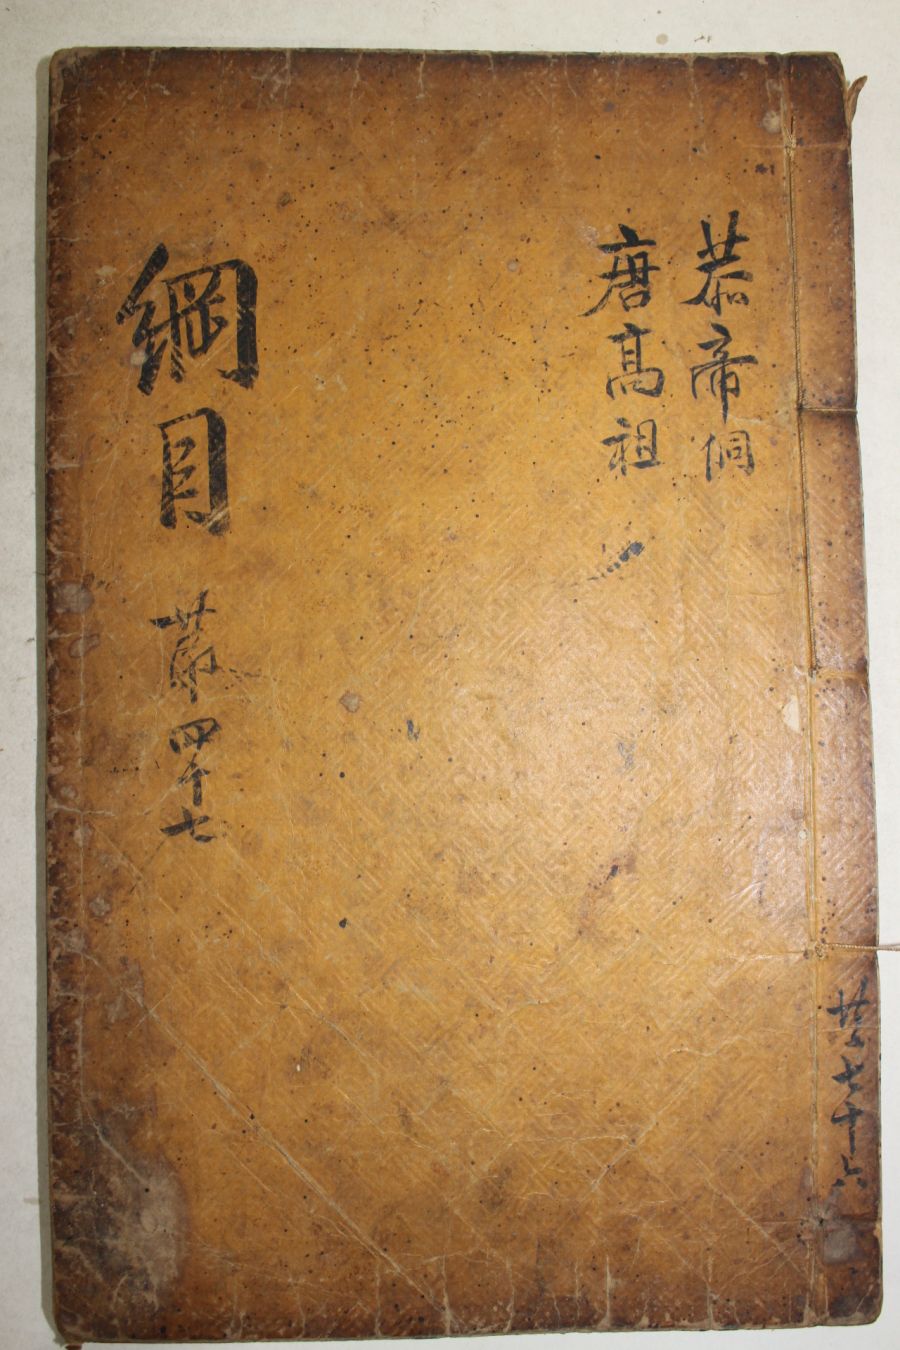 恭帝侗
唐髙祖
綱目 苐四十七
共七十六